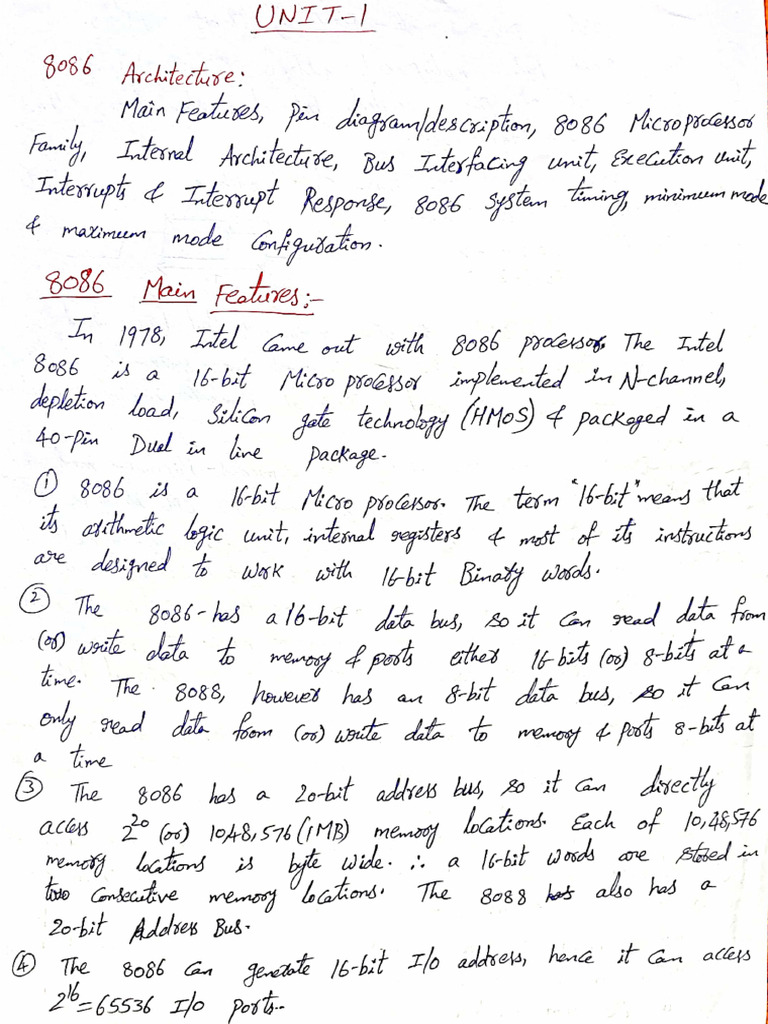 UNIT-1
8086 Architecture:
Main Features, Pin diagram/description, 8086 Microprocessor
Family, Internal Architecture, Bus Interfacing unit, Execution unit,
Interrupts & Interrupt Response, 8086 System timing, minimum mode
& maximum mode Configuration.
8086 Main Features:-
In 1978, Intel Came out with 8086 processor. The Intel
8086 is a 16-bit Micro processor implemented in N-channel,
depletion load, Silicon gate technology (HMOS) & packaged in a
40-Pin Dual in line package.
① 8086 is a 16-bit Micro processor. The term "16-bit" means that
its arithmetic logic unit, internal registers & most of its instructions
are designed to work with 16-bit Binary words.
② The 8086-has a 16-bit data bus, so it can read data from
(or) write data to memory & ports either 16-bits (or) 8-bits at a
time. The 8088, however has an 8-bit data bus, so it Can
only read data from (or) write data to memory & ports 8-bits at
a time
③ The 8086 has a 20-bit address bus, so it can directly
access 2²⁰ (or) 10,48,576 (1MB) memory locations. Each of 10,48,576
memory locations is byte wide. ∴ a 16-bit words are stored in
two consecutive memory locations. The 8088 has also has a
20-bit Address Bus.
④ The 8086 Can generate 16-bit I/o address, hence it can access
2¹⁶=65536 I/o ports..